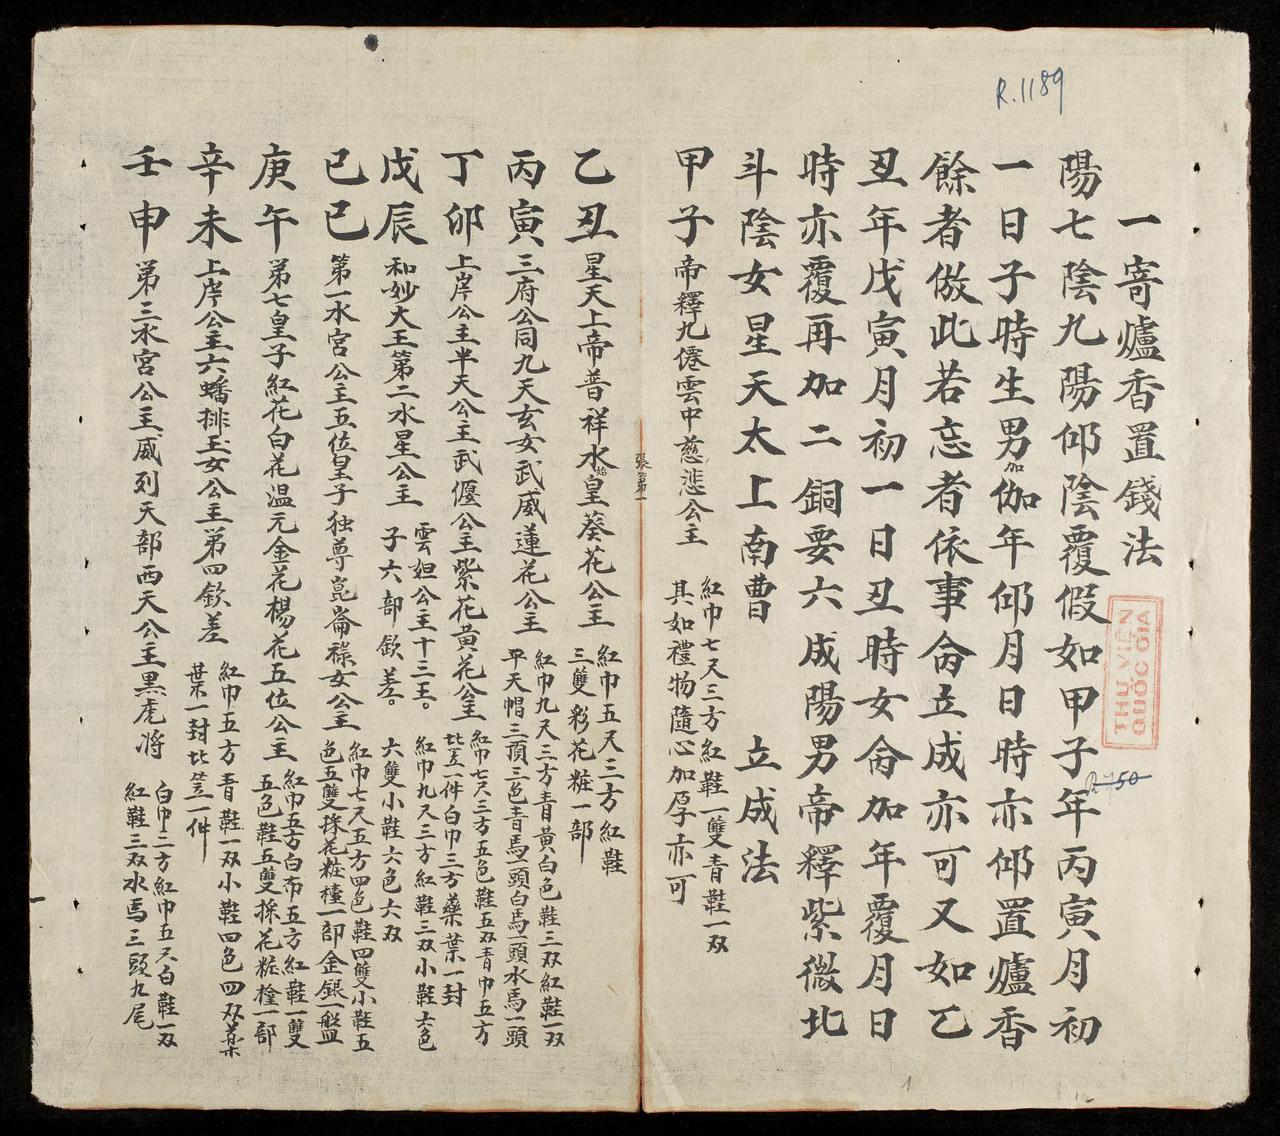 R.1189
一寄爐香置錢法
陽七陰九陽仰陰覆假如甲子年丙寅月初
一日子時生男加伽年仰月日時亦仰置爐香
餘者倣此若忘者依事侖立成亦可又如乙
丑年戊寅月初一日丑時女侖加年覆月日
時亦覆再加二銅要六成陽男帝釋紫微北
斗陰女星天太上南曹 立成法
甲子 帝釋九僊雲中慈悲公主 紅巾七尺三方紅鞋一雙青鞋一双
其如禮物隨心加厚亦可
張第一
乙丑 星天上帝普祥水始皇葵花公主 紅巾五尺三方紅鞋
三雙彩花粧一部
丙寅 三府公同九天玄女武威蓮花公主 紅巾九尺三方青黃白色鞋三双紅鞋一双
平天帽三頂三色青馬一頭白馬一頭水馬一頭
丁卯 上岸公主半天公主武偃公主紫花黃花公主 紅巾七尺三方五色鞋五双青巾五方
一件白巾三方藥葉一封
戊辰 和妙大王第二水星公主 雲妲公主十三王。
子六部欽差。 紅巾九尺三方紅鞋三双小鞋六色
六雙小鞋六色六双
己巳 第一水宮公主五位皇子独尊崑崙祿女公主 紅巾七尺五方四色鞋四雙小鞋五
色五雙採花粧檯一部金銀一盤
庚午 第七皇子紅花白花温元金花楊花五位公主 紅巾五方白布五方紅鞋一雙
五色鞋五雙採花粧一部
辛未 上岸公主六蟠排玉女公主第四欽差 紅巾五方青鞋一双小鞋四色四双藥
葉一封一件
壬申 第三水宮公主威列天部西天公主黑虎将 白巾二方紅巾五尺白鞋一双
紅鞋三双水馬三頭九尾
THƯ VIỆN
QUỐC GIA